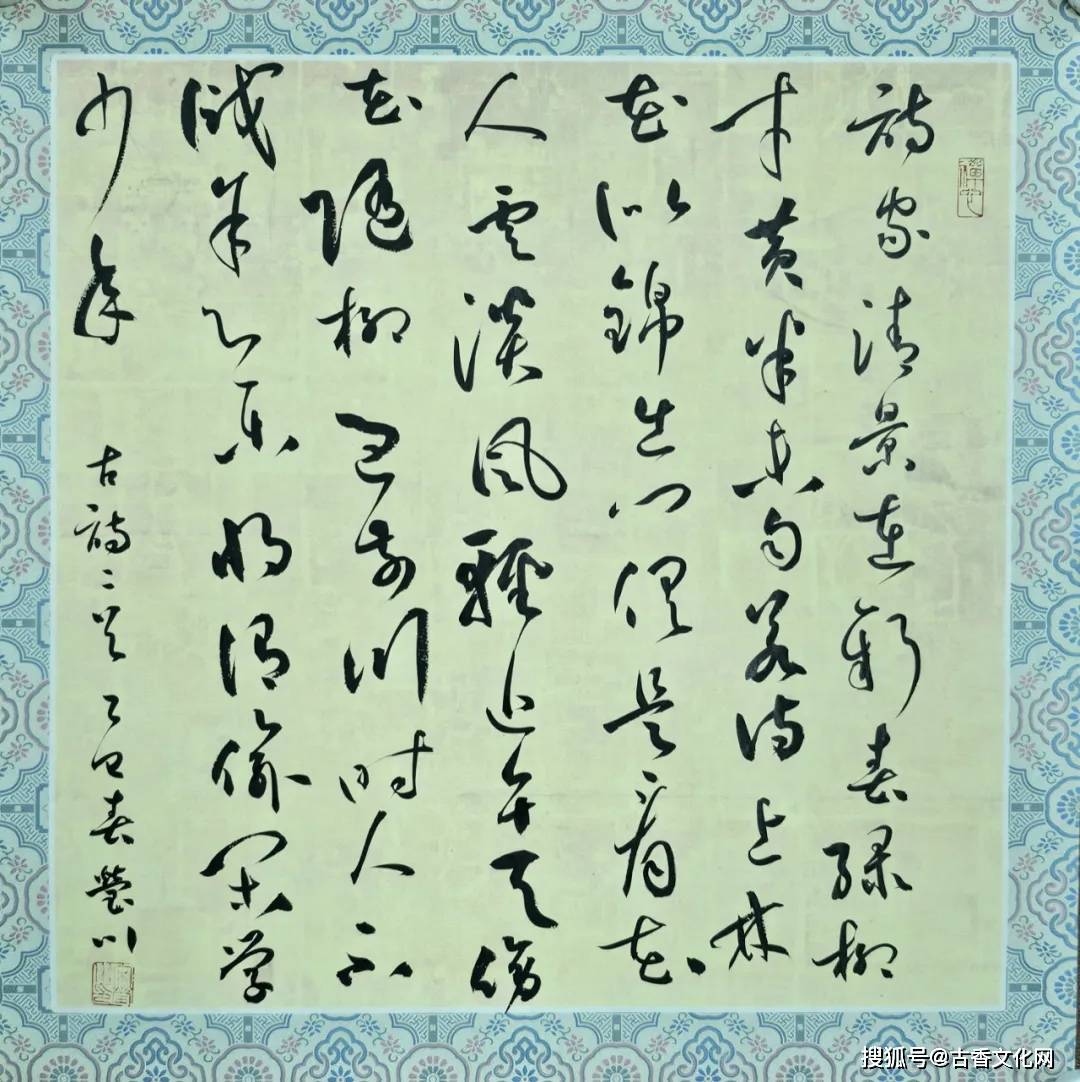 詩家清景在新春綠柳
才黃半未勻若待上林
花似錦出門俱是看花
人雲淡風輕近午天傍
花隨柳過前川時人不
識余心樂將謂偷閑学
少年
古詩二首 乙巳春瑩川
搜狐号@古香文化网